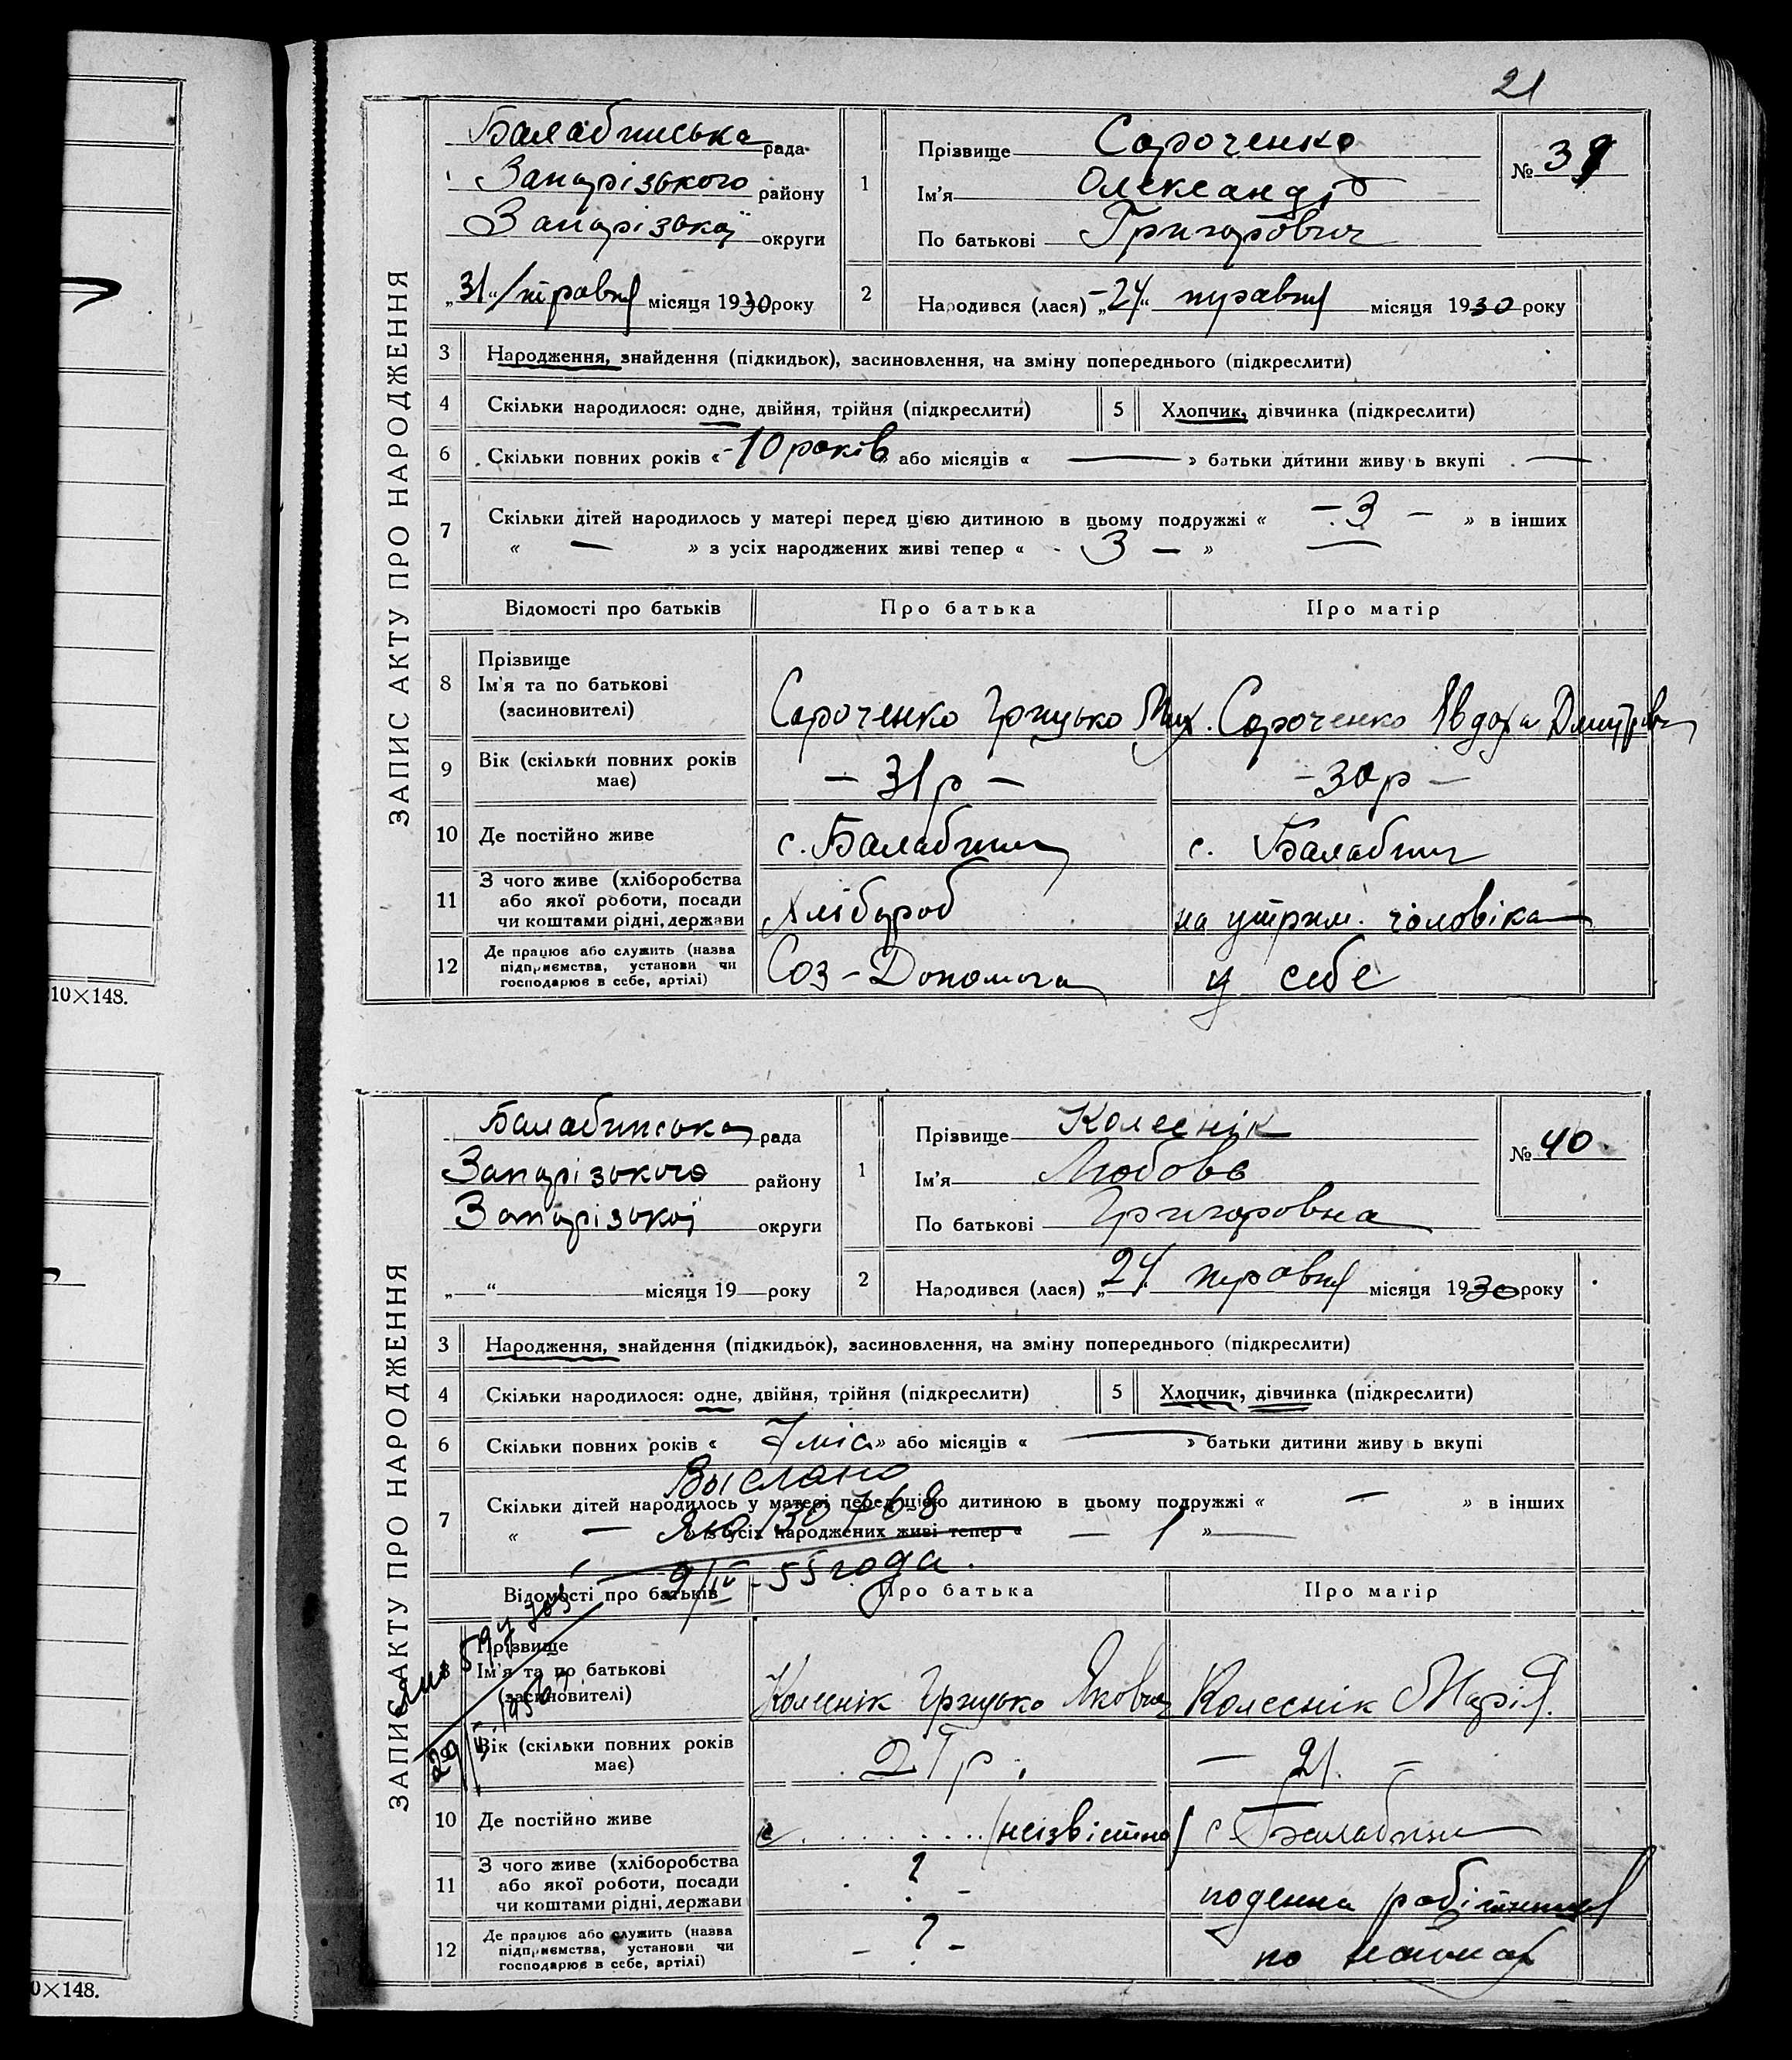 21
ЗАПИС АКТУ ПРО НАРОДЖЕННЯ
Балабинська рада
Запорізького району
Запорізької округи
„31“ травня місяця 1930 року
1
Прізвище Сороченко
Ім'я Олександр
По батькові Григорович
№ 39
2
Народився (лася) „24“ травня місяця 1930 року
3 Народження, знайдення (підкидьок), засиновлення, на зміну попереднього (підкреслити)
4 Скільки народилося: одне, двійня, трійня (підкреслити)
5 Хлопчик, дівчинка (підкреслити)
6 Скільки повних років « - 10 років » або місяців « — » батьки дитини живуть вкупі —
7 Скільки дітей народилось у матері перед цією дитиною в цьому подружжі « — 3 — » в інших
« — » з усіх народжених живі тепер « - 3 — » —
Відомості про батьків Про батька Про матір
8 Прізвище
Ім'я та по батькові
(засиновителі)
Сороченко Грицько Мих. Сороченко Явдоха Дмитрівн
9 Вік (скільки повних років має)
— 31 р — — 30 р —
10 Де постійно живе с. Балабине с. Балабине
11 З чого живе (хліборобства
або якої роботи, посади
чи коштами рідні, держави
Хлібороб на утрим. чоловіка
12 Де працює або служить (назва
підприємства, установи чи
господарює в себе, артілі)
Соз - Допомога у себе
10×148.
ЗАПИС АКТУ ПРО НАРОДЖЕННЯ
Балабинська рада
Запорізького району
Запорізької округи
„ “ місяця 19 року
1
Прізвище Колеснік
Ім'я Любовь
По батькові Григоровна
№ 40
2
Народився (лася) „24 травня місяця 1930 року
3 Народження, знайдення (підкидьок), засиновлення, на зміну попереднього (підкреслити)
4 Скільки народилося: одне, двійня, трійня (підкреслити)
5 Хлопчик, дівчинка (підкреслити)
6 Скільки повних років « 7 міс » або місяців « — » батьки дитини живуть вкупі
Выслано
7 Скільки дітей народилось у матері перед цією дитиною в цьому подружжі « — » в інших
« — » з усіх народжених живі тепер « — 1 » —
130768
9/IV - 55 года.
Відомості про батьків Про батька Про матір
8 Прізвище
Ім'я та по батькові
(засиновителі)
Колеснік Грицько Якович Колеснік Марія.
9 Вік (скільки повних років має)
— 21. —
10 Де постійно живе с. . . . . . . . . /неізвістно/ с. Балабине
11 З чого живе (хліборобства
або якої роботи, посади
чи коштами рідні, держави
? - поденна робітниця
12 Де працює або служить (назва
підприємства, установи чи
господарює в себе, артілі)
- ? - по наймах
0×148.